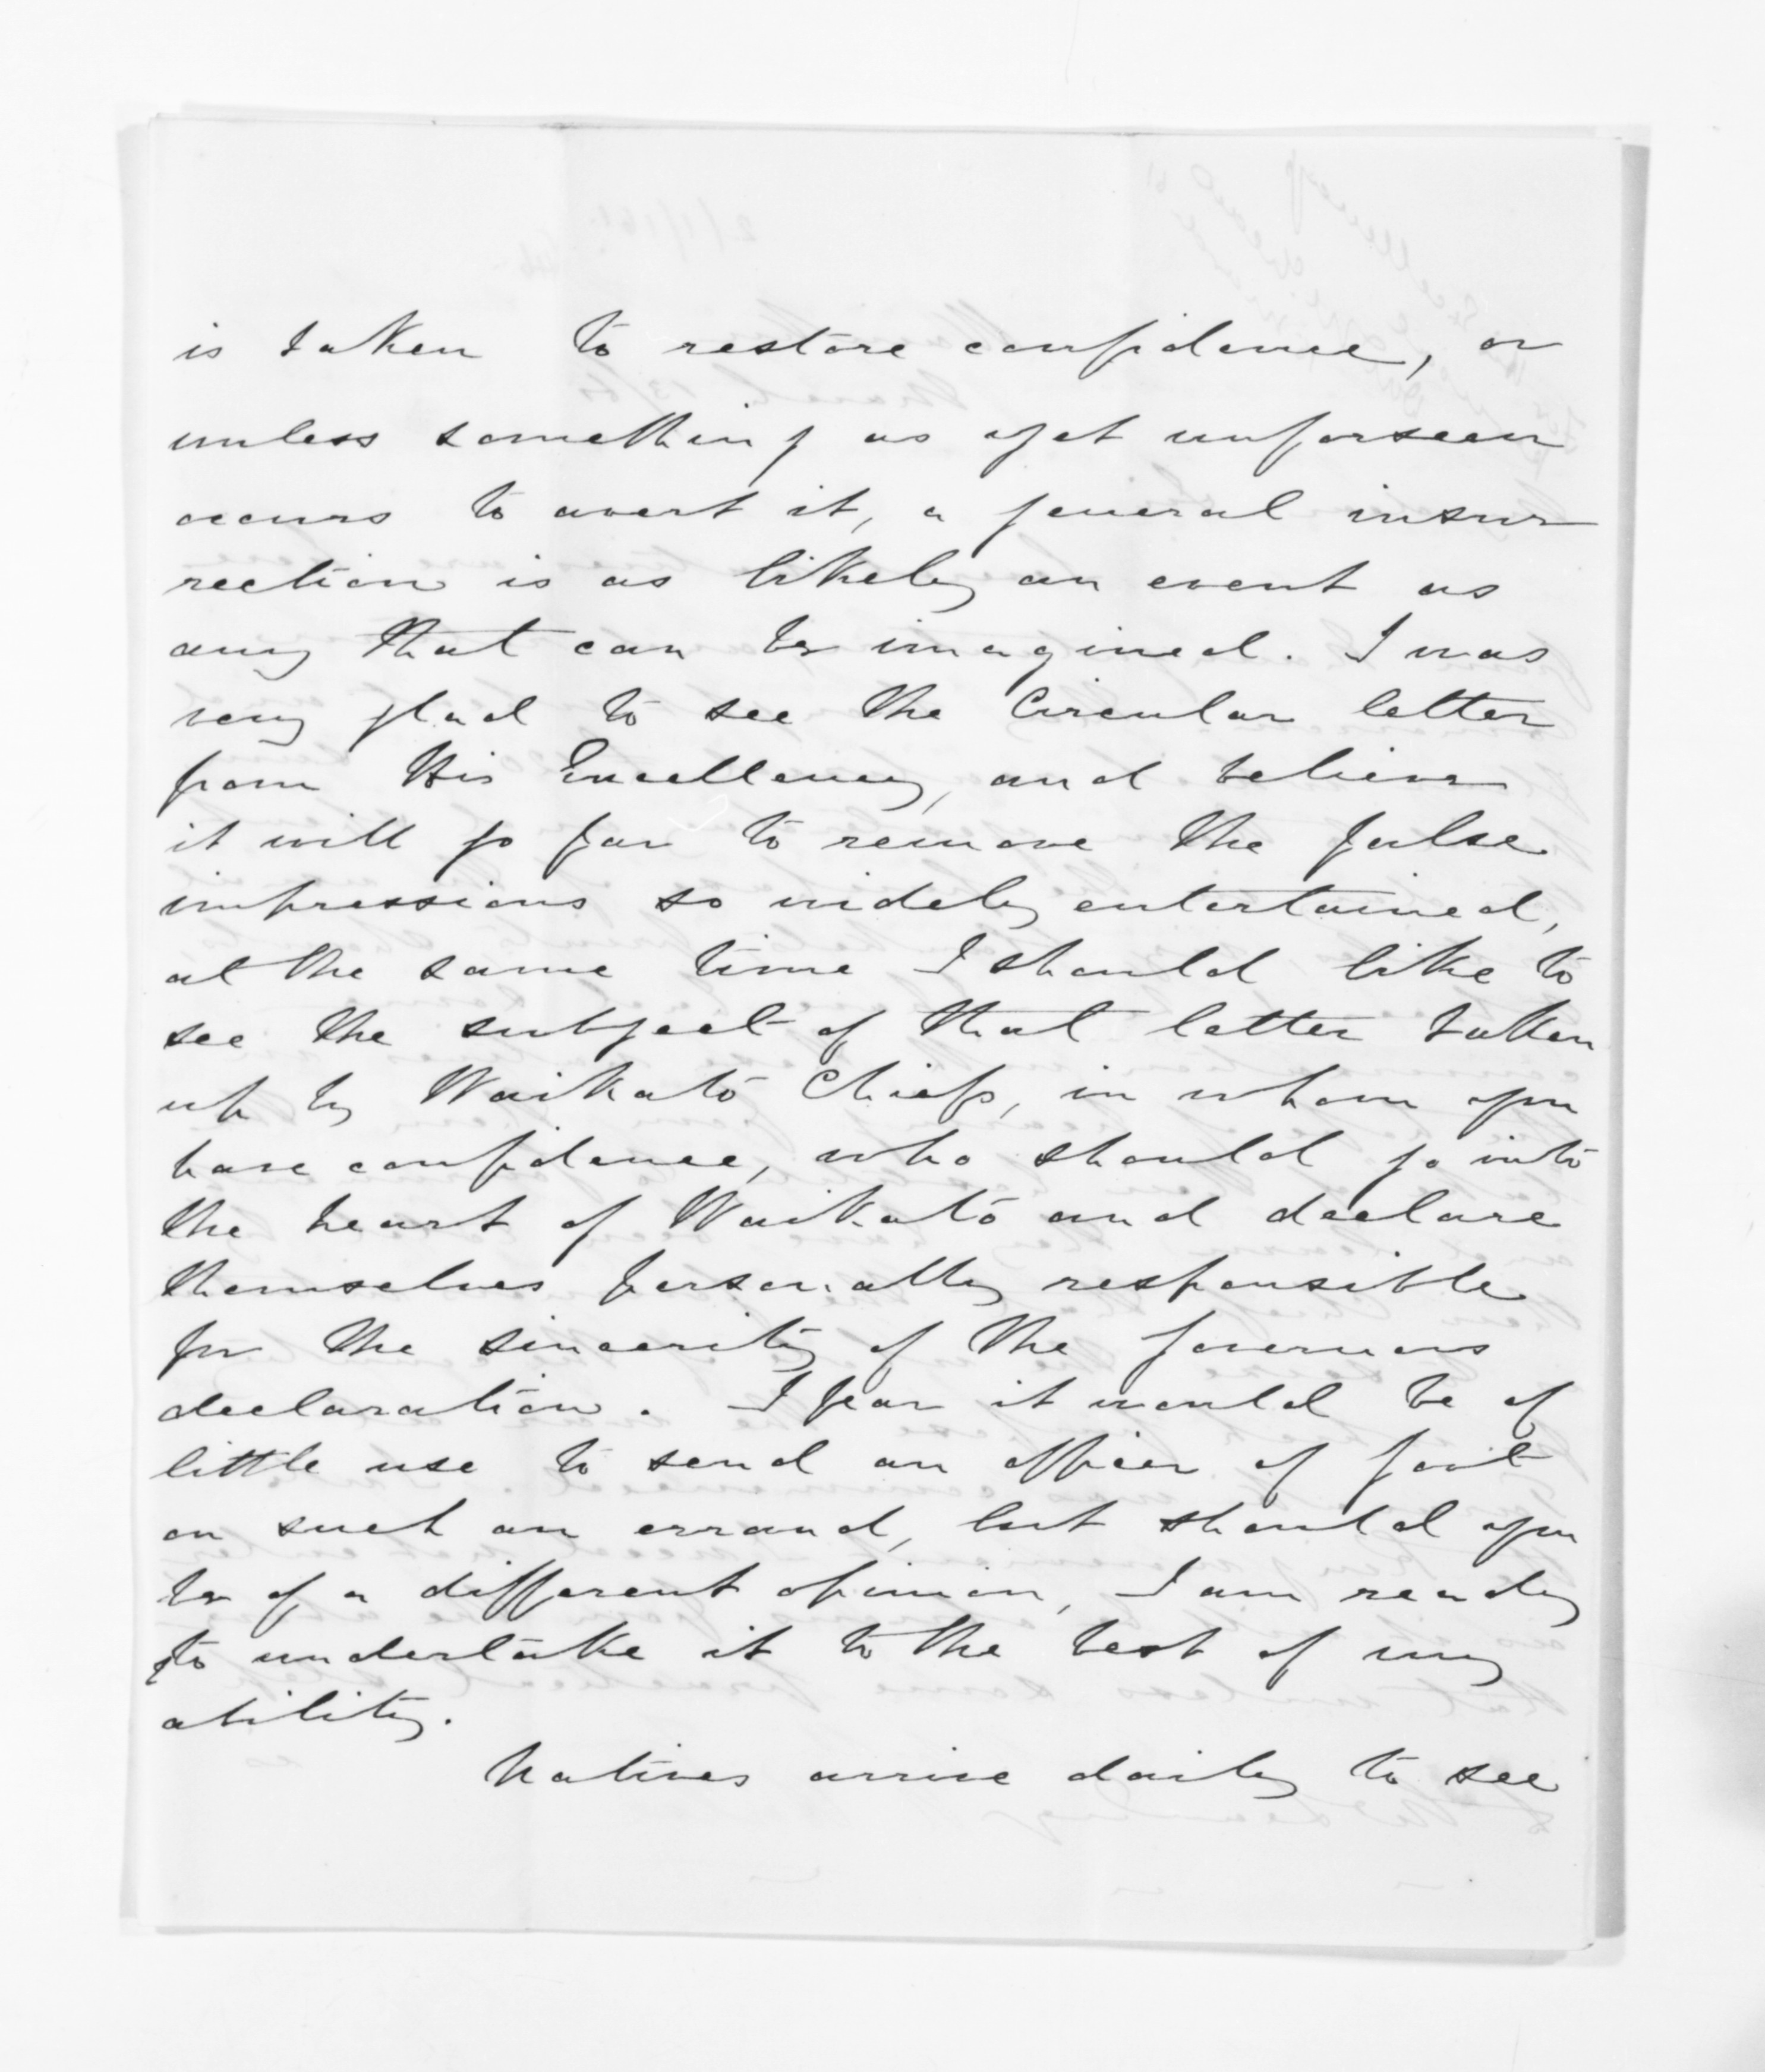 is taken to restore confidence, or
unless something as yet unforseen
occurs to avert it, a general insur
rection is as likely an event as
any that can be imagined. I was
very glad to see the Circular letter
from His Excellency, and believe
it will go far to remove the false
impressions so widely entertained,
at the same time I should like to
see the subject of that letter taken
up by Waikato Chiefs, in whom you
have confidence, who should go into
the heart of Waikato and declare
themselves personally responsible
for the sincerity of the Governors
declaration. I fear it would be of
little use to send an officer of Govt
on such an errand, but should you
be of a different opinion, I am ready
to undertake it to the best of my
ability.
Natives arrive daily to see